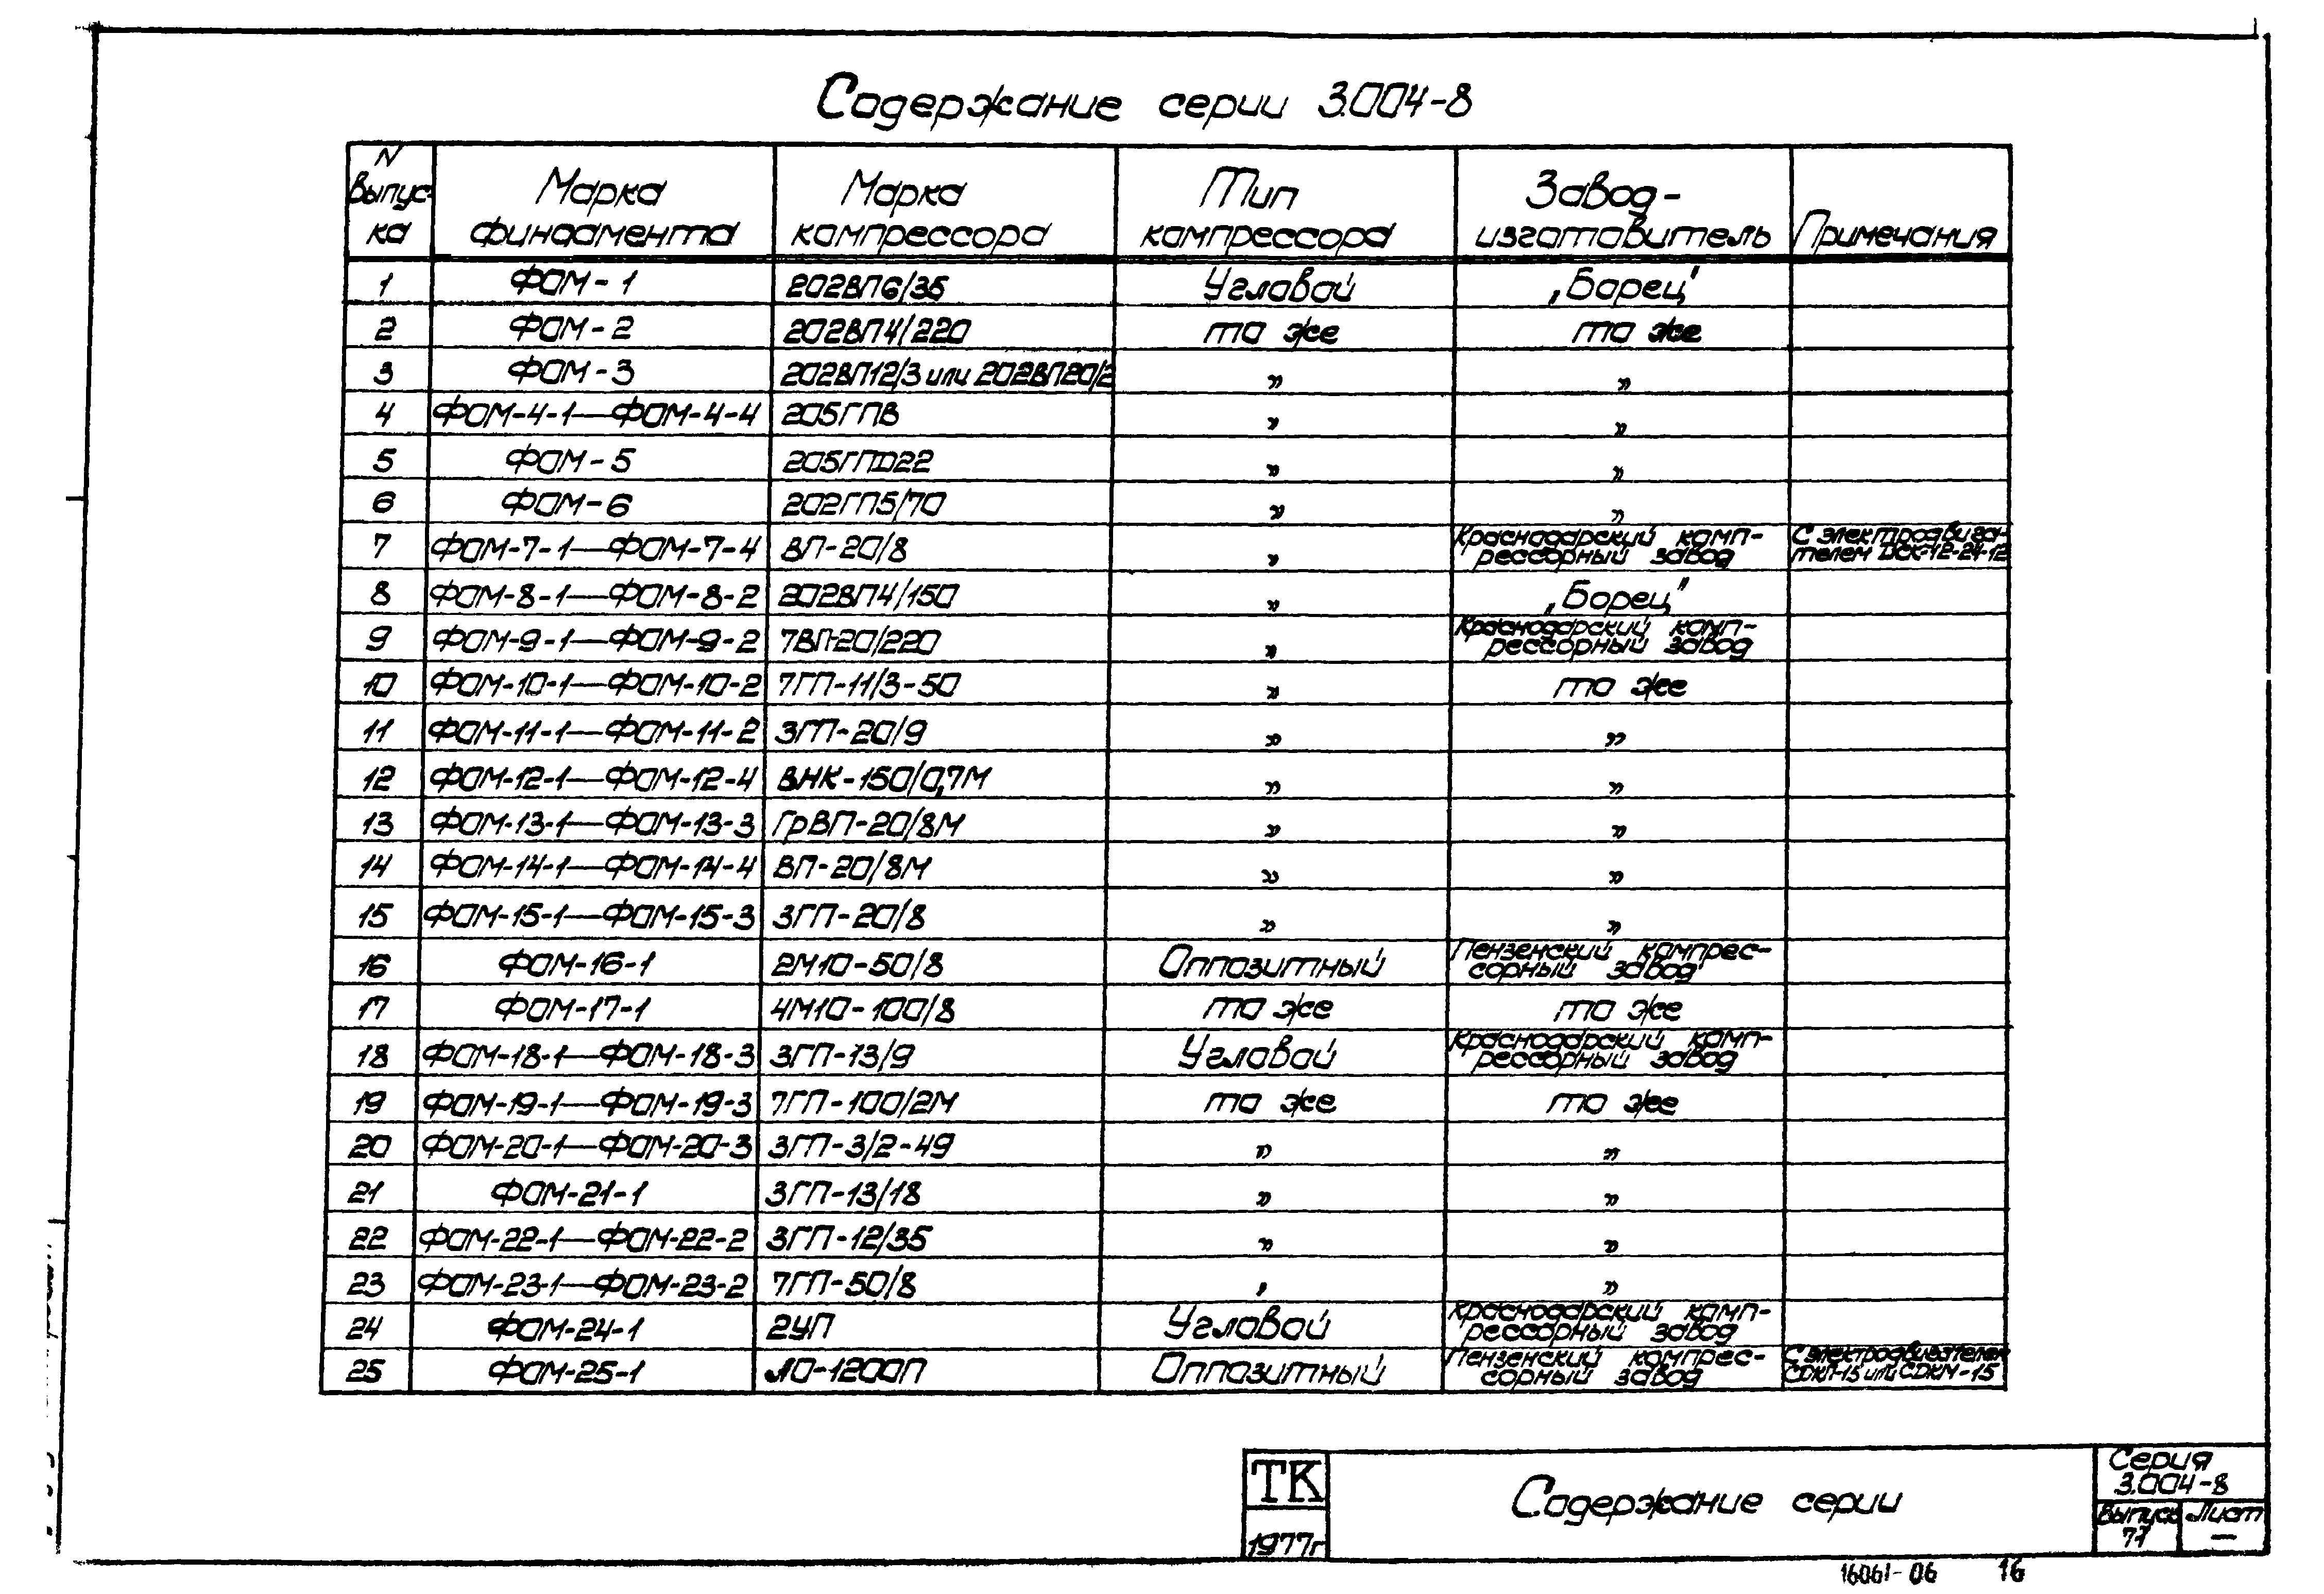 Содержание серии 3.004-8
N выпус-ка Марка финдамента Марка компрессора Тип компрессора Завод-изготовитель Примечания
1 ФОМ-1 202ВП6/35 Угловой „Борец"
2 ФОМ-2 202ВП4/220 то же то же
3 ФОМ-3 202ВП12/3 или 202ВП20/2 " "
4 ФОМ-4-1—ФОМ-4-4 205ГПВ " "
5 ФОМ-5 " "
6 ФОМ-6 202ГП5/70 " "
7 ФОМ-7-1—ФОМ-7-4 ВП-20/8 " Краснодарский комп-рессорный завод С электродвига-телем ДСК-12-24-12
8 ФОМ-8-1—ФОМ-8-2 202ВП4/150 " „Борец"
9 ФОМ-9-1—ФОМ-9-2 7ВП-20/220 " Краснодарский комп-рессорный завод
10 ФОМ-10-1—ФОМ-10-2 7ГП-11/3-50 " то же
11 ФОМ-11-1—ФОМ-11-2 3ГП-20/9 " "
12 ФОМ-12-1—ФОМ-12-4 ВНК-150/0,7М " "
13 ФОМ-13-1—ФОМ-13-3 ГрВП-20/8М " "
14 ФОМ-14-1—ФОМ-14-4 ВП-20/8М " "
15 ФОМ-15-1—ФОМ-15-3 3ГП-20/8 " "
16 ФОМ-16-1 2М10-50/8 Оппозитный Пензенский компрес-сорный завод
17 ФОМ-17-1 4М10-100/8 то же то же
18 ФОМ-18-1—ФОМ-18-3 3ГП-13/9 Угловой Краснодарский комп-рессорный завод
19 ФОМ-19-1—ФОМ-19-3 7ГП-100/2М то же то же
20 ФОМ-20-1—ФОМ-20-3 3ГП-3/2-49 " "
21 ФОМ-21-1 3ГП-13/18 " "
22 ФОМ-22-1—ФОМ-22-2 3ГП-12/35 " "
23 ФОМ-23-1—ФОМ-23-2 7ГП-50/8 " "
24 ФОМ-24-1 2УП Угловой Краснодарский комп-рессорный завод
25 ФОМ-25-1 ЛО-1200П Оппозитный Пензенский компрес-сорный завод С электродвигателем СДКП-15 или СДКМ-15
ТК
1977г
Содержание серии
Серия
3.004-8
Выпуск Лист
—
16061-06 16